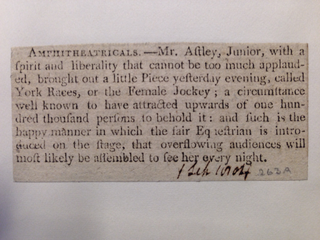 AMPHITHEATRICALS.—Mr. Aſtley, Junior, with a
ſpirit and liberality that cannot be too much applaud-
ed, brought out a little Piece yeſterday evening, called
York Races, or the Female Jockey; a circumſtance
well known to have attracted upwards of one hun-
dred thouſand perſons to behold it: and ſuch is the
happy manner in which the fair Equeſtrian is intro-
duced on the ſtage, that overflowing audiences will
moſt likely be aſſembled to ſee her every night.